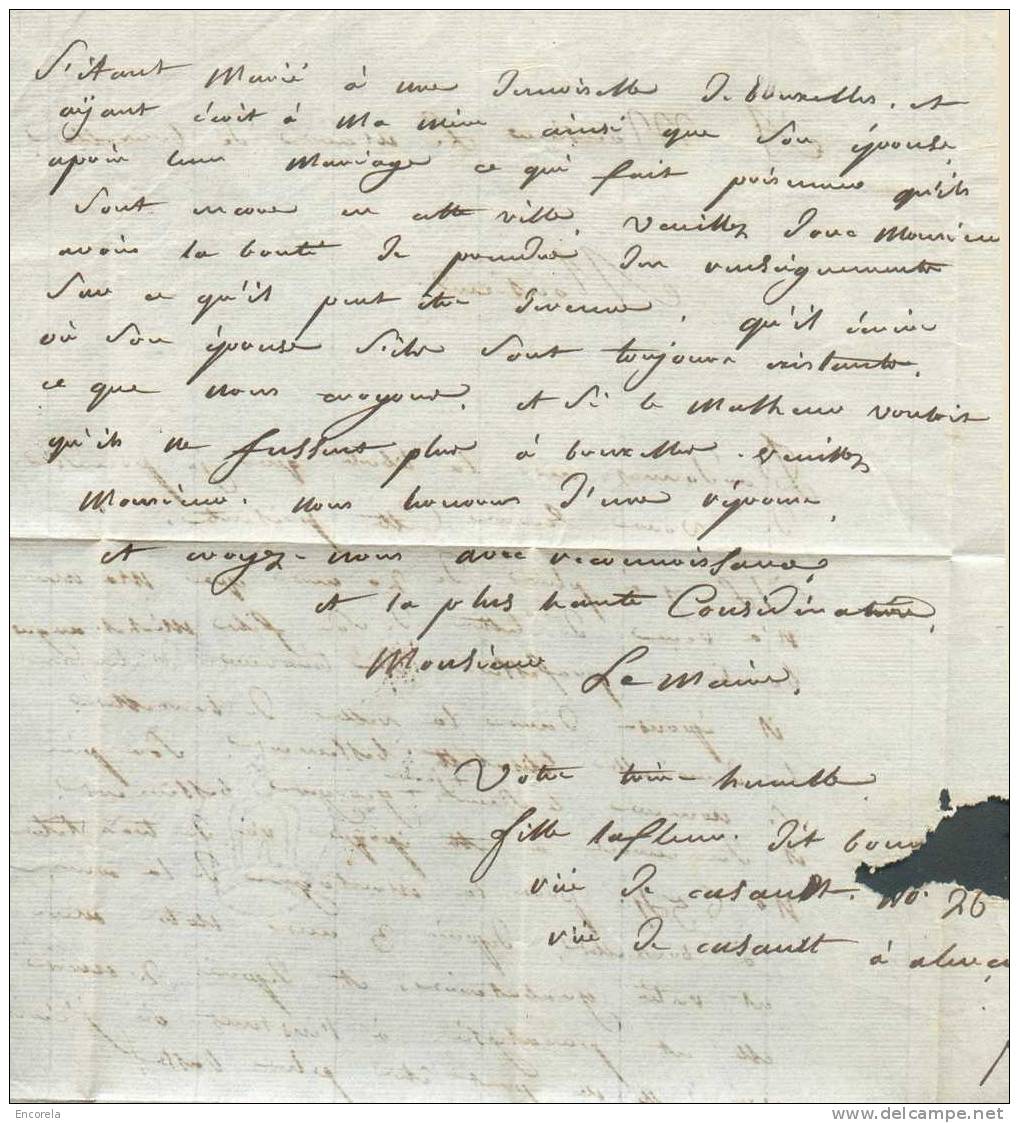 S'étant Marié à une demoiselle de bruxelles. et
ayant écrit à Ma Mère ainsi que Son épouse,
après leur Mariage ce qui fait présumer qu'ils
Sont encore en cette ville, veuillez donc Monsieur
avoir la bonté de prendre des renseignements
Sur ce qu'il peut être devenu, qu'il écrive
où Son épouse S'ils Sont toujours existants.
ce que nous croyons. et Si le Malheur vouloit
qu'ils ne fussent plus à bruxelles. veuillez
Monsieur. nous honorer d'une réponse,
et croyez-nous avec reconnoissance,
et la plus haute Considération,
Monsieur
Le Maire,
Votre très-humble
fille lafleur. dit bour
rüe de casault. No. 26
rüe de casault à alenço
Encorela
www.delcampe.net